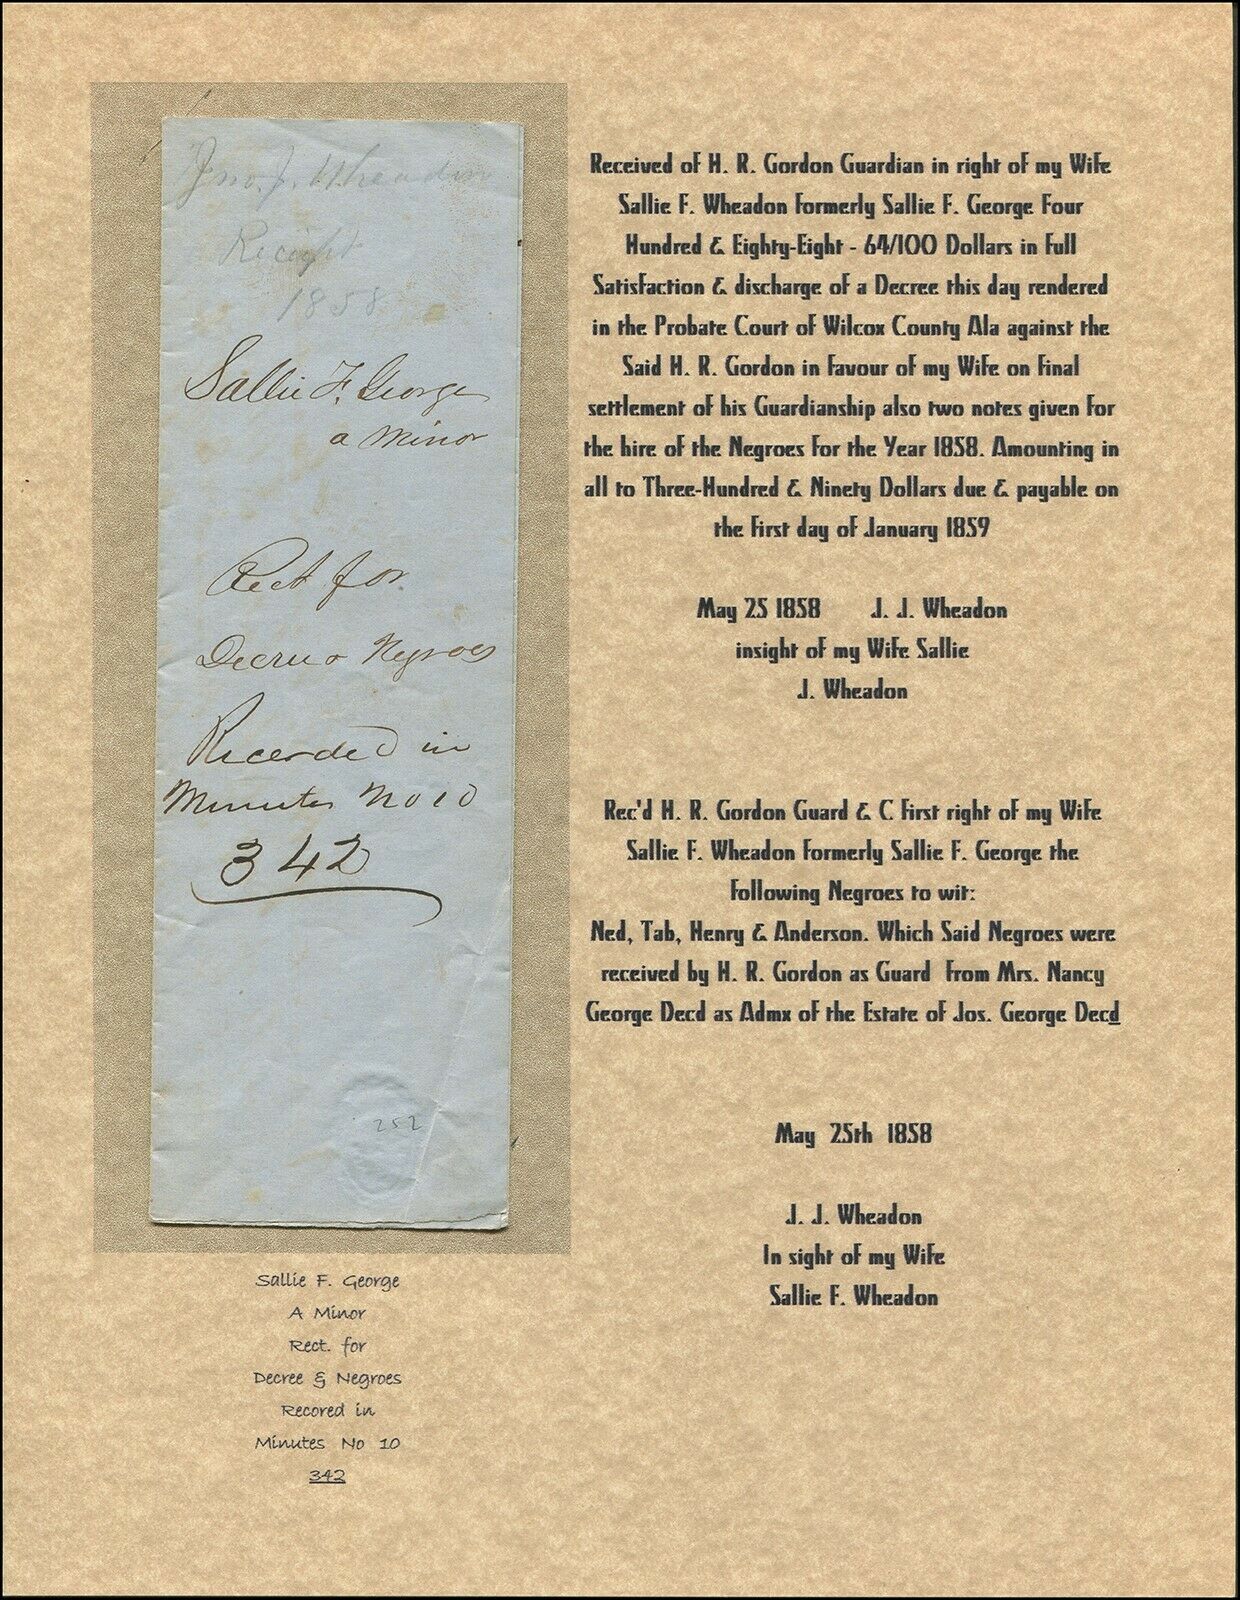 Jno. J. Wheadon
Receipt
1858
Sallie F. George
a minor
Rect for
Decree & Negroes
Recorded in
Minutes No 10
342
252
Sallie F. George
A Minor
Rect. for
Decree & Negroes
Recored in
Minutes No 10
342
Received of H. R. Gordon Guardian in right of my Wife
Sallie F. Wheadon formerly Sallie F. George Four
Hundred & Eighty-Eight - 64/100 Dollars in full
Satisfaction & discharge of a Decree this day rendered
in the Probate Court of Wilcox County Ala against the
Said H. R. Gordon in favour of my Wife on final
settlement of his Guardianship also two notes given for
the hire of the Negroes for the Year 1858. Amounting in
all to Three-Hundred & Ninety Dollars due & payable on
the first day of January 1859
May 25 1858 J. J. Wheadon
insight of my Wife Sallie
J. Wheadon
Rec'd H. R. Gordon Guard & C first right of my Wife
Sallie F. Wheadon formerly Sallie F. George the
following Negroes to wit:
Ned, Tab, Henry & Anderson. Which Said Negroes were
received by H. R. Gordon as Guard from Mrs. Nancy
George Decd as Admx of the Estate of Jos. George Decd
May 25th 1858
J. J. Wheadon
In sight of my Wife
Sallie F. Wheadon